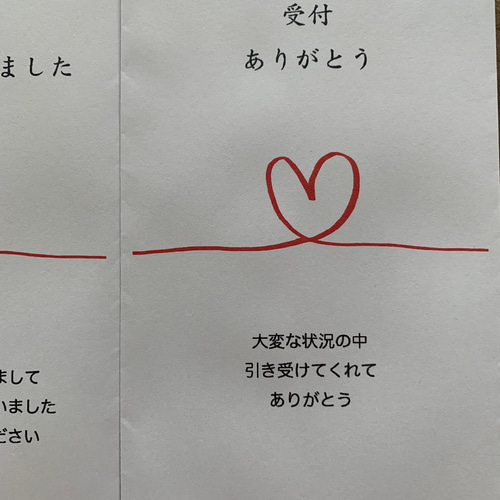 受付
ありがとう
大変な状況の中
引き受けてくれて
ありがとう
ました
まして
いました
ださい